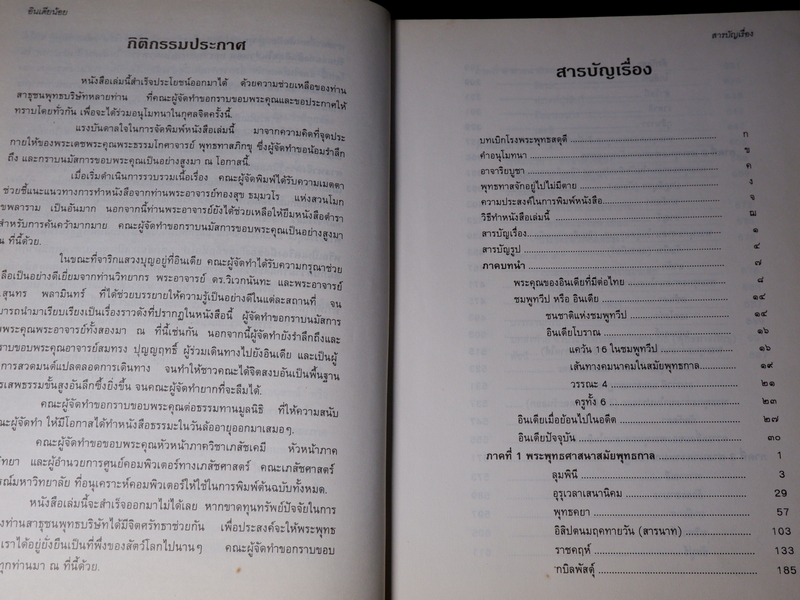 อินเดียน้อย
กิติกรรมประกาศ
หนังสือเล่มนี้สำเร็จประโยชน์ออกมาได้ ด้วยความช่วยเหลือของท่าน
สาธุชนพุทธบริษัทหลายท่าน ที่คณะผู้จัดทำขอกราบขอบพระคุณและขอประกาศให้
ทราบโดยทั่วกัน เพื่อจะได้ร่วมอนุโมทนาในกุศลจิตครั้งนี้.
แรงบันดาลใจในการจัดพิมพ์หนังสือเล่มนี้ มาจากความคิดที่จุดประ
กายให้ของพระเดชพระคุณพระธรรมโกศาจารย์ พุทธทาสภิกขุ ซึ่งผู้จัดทำขอน้อมรำลึก
ถึง และกราบนมัสการขอบพระคุณเป็นอย่างสูงมา ณ โอกาสนี้.
เมื่อเริ่มดำเนินการรวบรวมเนื้อเรื่อง คณะผู้จัดพิมพ์ได้รับความเมตตา
ช่วยชี้แนะแนวทางการทำหนังสือจากท่านพระอาจารย์ทองสุข ธมฺมวโร แห่งสวนโมก
ขพลาราม เป็นอันมาก นอกจากนี้ท่านพระอาจารย์ยังได้ช่วยเหลือให้ยืมหนังสือตำรา
สำหรับการค้นคว้ามากมาย คณะผู้จัดทำขอกราบนมัสการขอบพระคุณเป็นอย่างสูงมา
ณ ที่นี้ด้วย.
ในขณะที่จาริกแสวงบุญอยู่ที่อินเดีย คณะผู้จัดทำได้รับความกรุณาช่วย
ลือเป็นอย่างดีเยี่ยมจากท่านวิทยากร พระอาจารย์ ดร.วิเวกนันทะ และพระอาจารย์
.สุนทร พลามินทร์ ที่ได้ช่วยบรรยายให้ความรู้เป็นอย่างดีในแต่ละสถานที่ จน
มารถนำมาเรียบเรียงเป็นเรื่องราวดังที่ปรากฏในหนังสือนี้ ผู้จัดทำขอกราบนมัสการ
พระคุณพระอาจารย์ทั้งสองมา ณ ที่นี้เช่นกัน นอกจากนี้ผู้จัดทำยังรำลึกถึงและ
ราบขอบพระคุณอาจารย์สมทรง ปุญญฤทธิ์ ผู้ร่วมเดินทางไปยังอินเดีย และเป็นผู้
การสวดมนต์แปลตลอดการเดินทาง จนทำให้ชาวคณะได้จิตสงบอันเป็นพื้นฐาน
รเสพธรรมขั้นสูงอันลึกซึ้งยิ่งขึ้น จนคณะผู้จัดทำยากที่จะลืมได้.
คณะผู้จัดทำขอกราบขอบพระคุณต่อธรรมทานมูลนิธิ ที่ให้ความสนับ
ณะผู้จัดทำ ให้มีโอกาสได้ทำหนังสือธรรมะในวันล้ออายุออกมาเสมอๆ.
คณะผู้จัดทำขอขอบพระคุณหัวหน้าภาควิชาเภสัชเคมี หัวหน้าภาค
วิทยา และผู้อำนวยการศูนย์คอมพิวเตอร์ทางเภสัชศาสตร์ คณะเภสัชศาสตร์
รณ์มหาวิทยาลัย ที่อนุเคราะห์คอมพิวเตอร์ให้ใช้ในการพิมพ์ต้นฉบับทั้งหมด.
หนังสือเล่มนี้จะสำเร็จออกมาไม่ได้เลย หากขาดทุนทรัพย์ปัจจัยในการ
งท่านสาธุชนพุทธบริษัทได้มีจิตศรัทธาช่วยกัน เพื่อประสงค์จะให้พระพุทธ
เราได้อยู่ยั่งยืนเป็นที่พึ่งของสัตว์โลกไปนานๆ คณะผู้จัดทำขอกราบขอบ
ทุกท่านมา ณ ที่นี้ด้วย.
สารบัญเรื่อง
สารบัญเรื่อง
บทเบิกโรงพระพุทธสดุดี ........ ก
คำอนุโมทนา ........ ข
อาจาริยบูชา ........ ค
พุทธทาสจักอยู่ไปไม่มีตาย ........ ง
ความประสงค์ในการพิมพ์หนังสือ ........ จ
วิธีทำหนังสือเล่มนี้ ........ ฌ
สารบัญเรื่อง ........ ๑
สารบัญรูป ........ ๔
ภาคบทนำ ........ ๗
พระคุณของอินเดียที่มีต่อไทย ........ ๘
ชมพูทวีป หรือ อินเดีย ........ ๑๔
ชนชาติแห่งชมพูทวีป ........ ๑๔
อินเดียโบราณ ........ ๑๖
แคว้น 16 ในชมพูทวีป ........ ๑๖
เส้นทางคมนาคมในสมัยพุทธกาล ........ ๑๙
วรรณะ 4 ........ ๒๑
ครูทั้ง 6 ........ ๒๓
อินเดียเมื่อย้อนไปในอดีต ........ ๒๗
อินเดียปัจจุบัน ........ ๓๐
ภาคที่ 1 พระพุทธศาสนาสมัยพุทธกาล ........ 1
ลุมพินี ........ 3
อุรุเวลาเสนานิคม ........ 29
พุทธคยา ........ 57
อิสิปตนมฤคทายวัน (สารนาท) ........ 103
ราชคฤห์ ........ 133
กบิลพัสดุ์ ........ 185